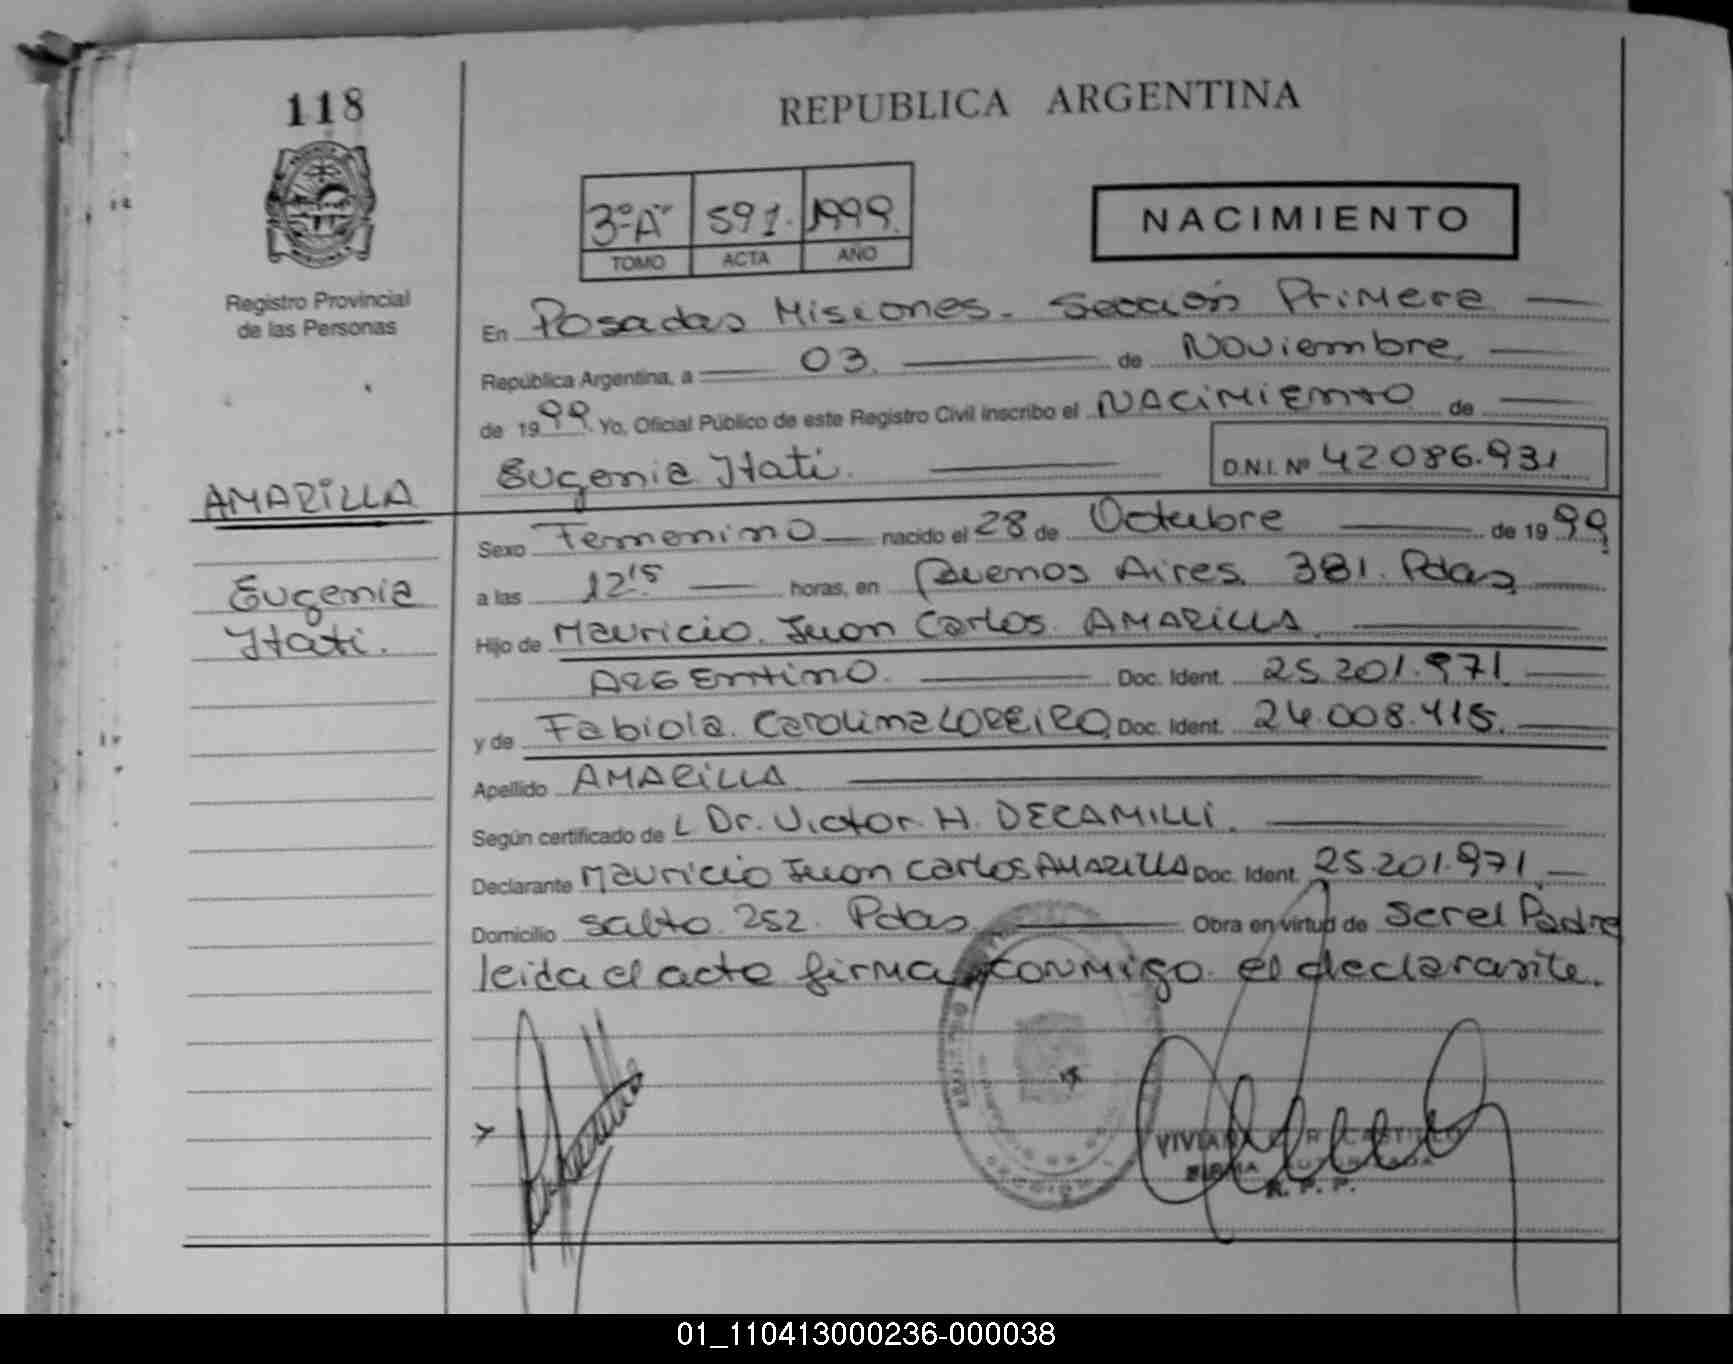 118
REPUBLICA ARGENTINA
3º "A" 591. 1999.
TOMO ACTA AÑO
NACIMIENTO
Registro Provincial
de las Personas
En Posadas Misiones. Sección Primera
República Argentina, a 03. de Noviembre.
de 1999. Yo, Oficial Público de este Registro Civil inscribo el NACIMIENTO de
Eugenia Itati. D.N.I. Nº 42.086.931
AMARILLA
Eugenia
Itati.
Sexo Femenino nacido el 28 de Octubre de 1999
a las 12'15 horas, en Buenos Aires. 381. Pdas
Hijo de Mauricio. Juan Carlos. AMARILLA.
ARGEntinO. Doc. Ident. 25.201.971.
y de Fabiola. Carolina LOREIRO Doc. Ident. 24.008.415.
Apellido AMARILLA
Según certificado de L Dr. Victor. H. DECAMILLI.
Declarante Mauricio Juan Carlos AMARILLA Doc. Ident. 25.201.971.
Domicilio Salto. 252. Pdas Obra en virtud de Ser el Padre
leida el acta firma conmigo el declarante.
CASTILLO
R. P. P.
01_110413000236-000038